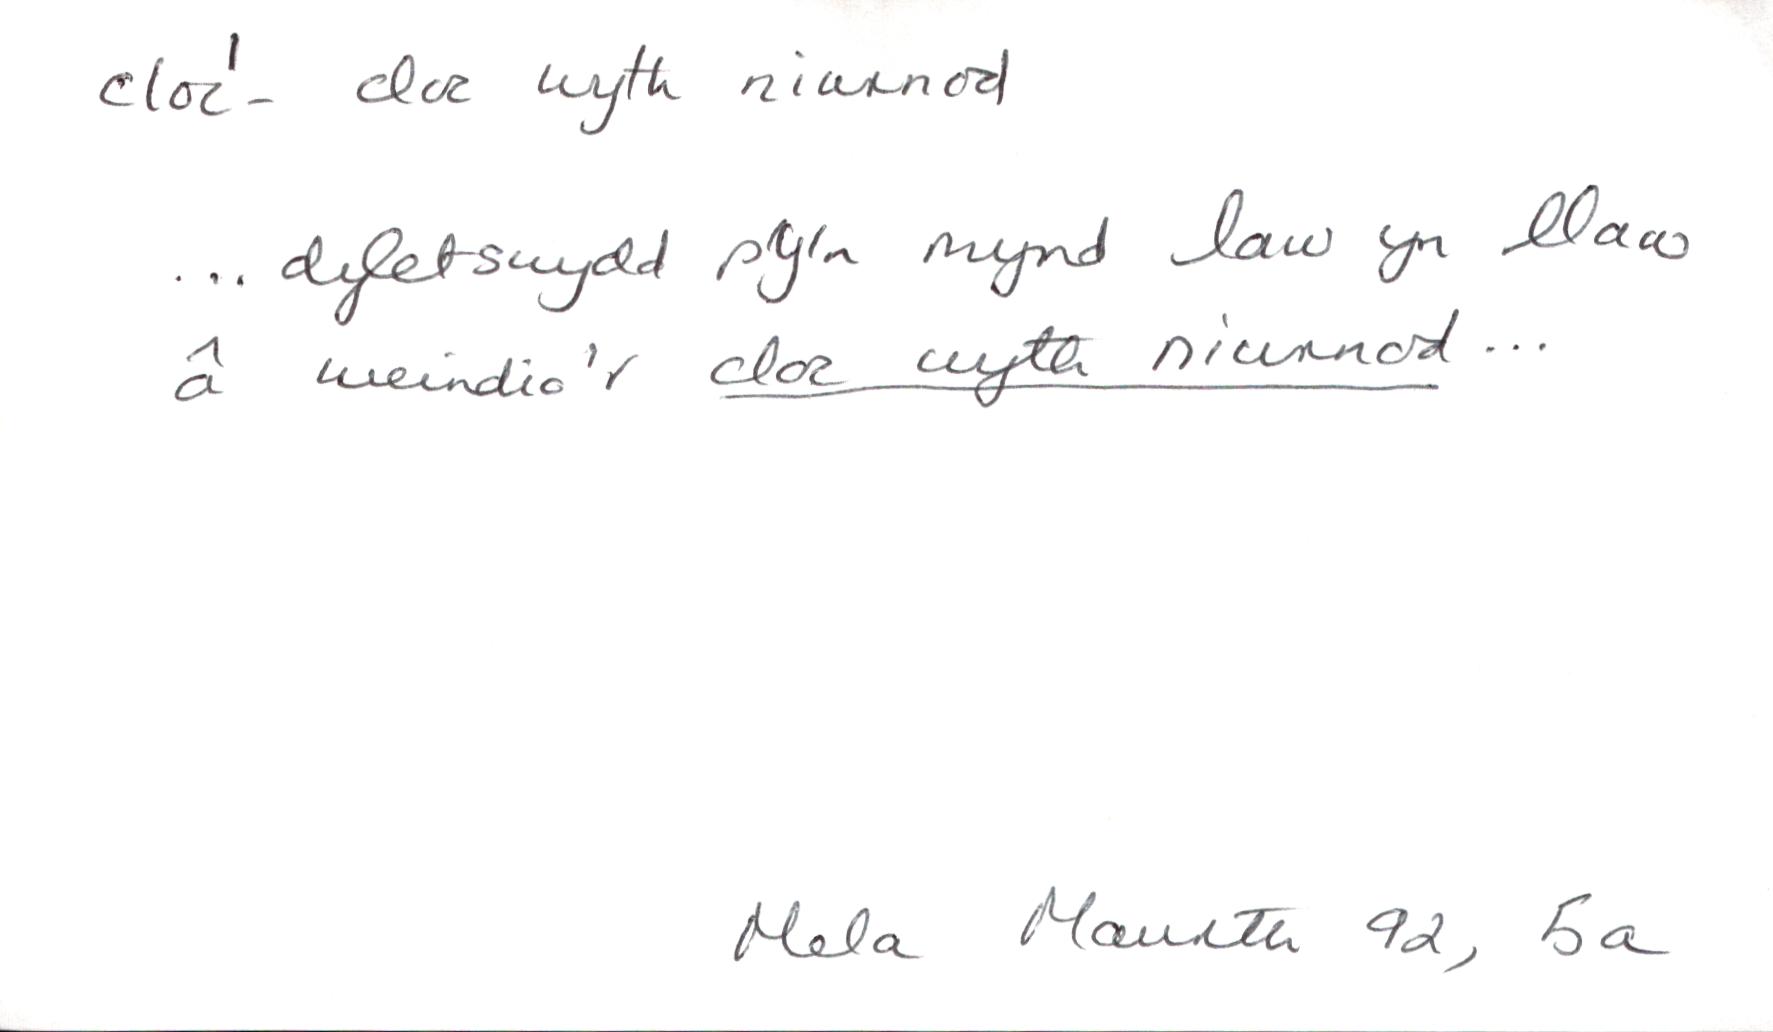 cloc¹- cloc wyth niwrnod
... dyletswydd sy'n mynd law yn llaw
â weindio'r cloc wyth niwrnod...
Mela Mawrth 92, 5a